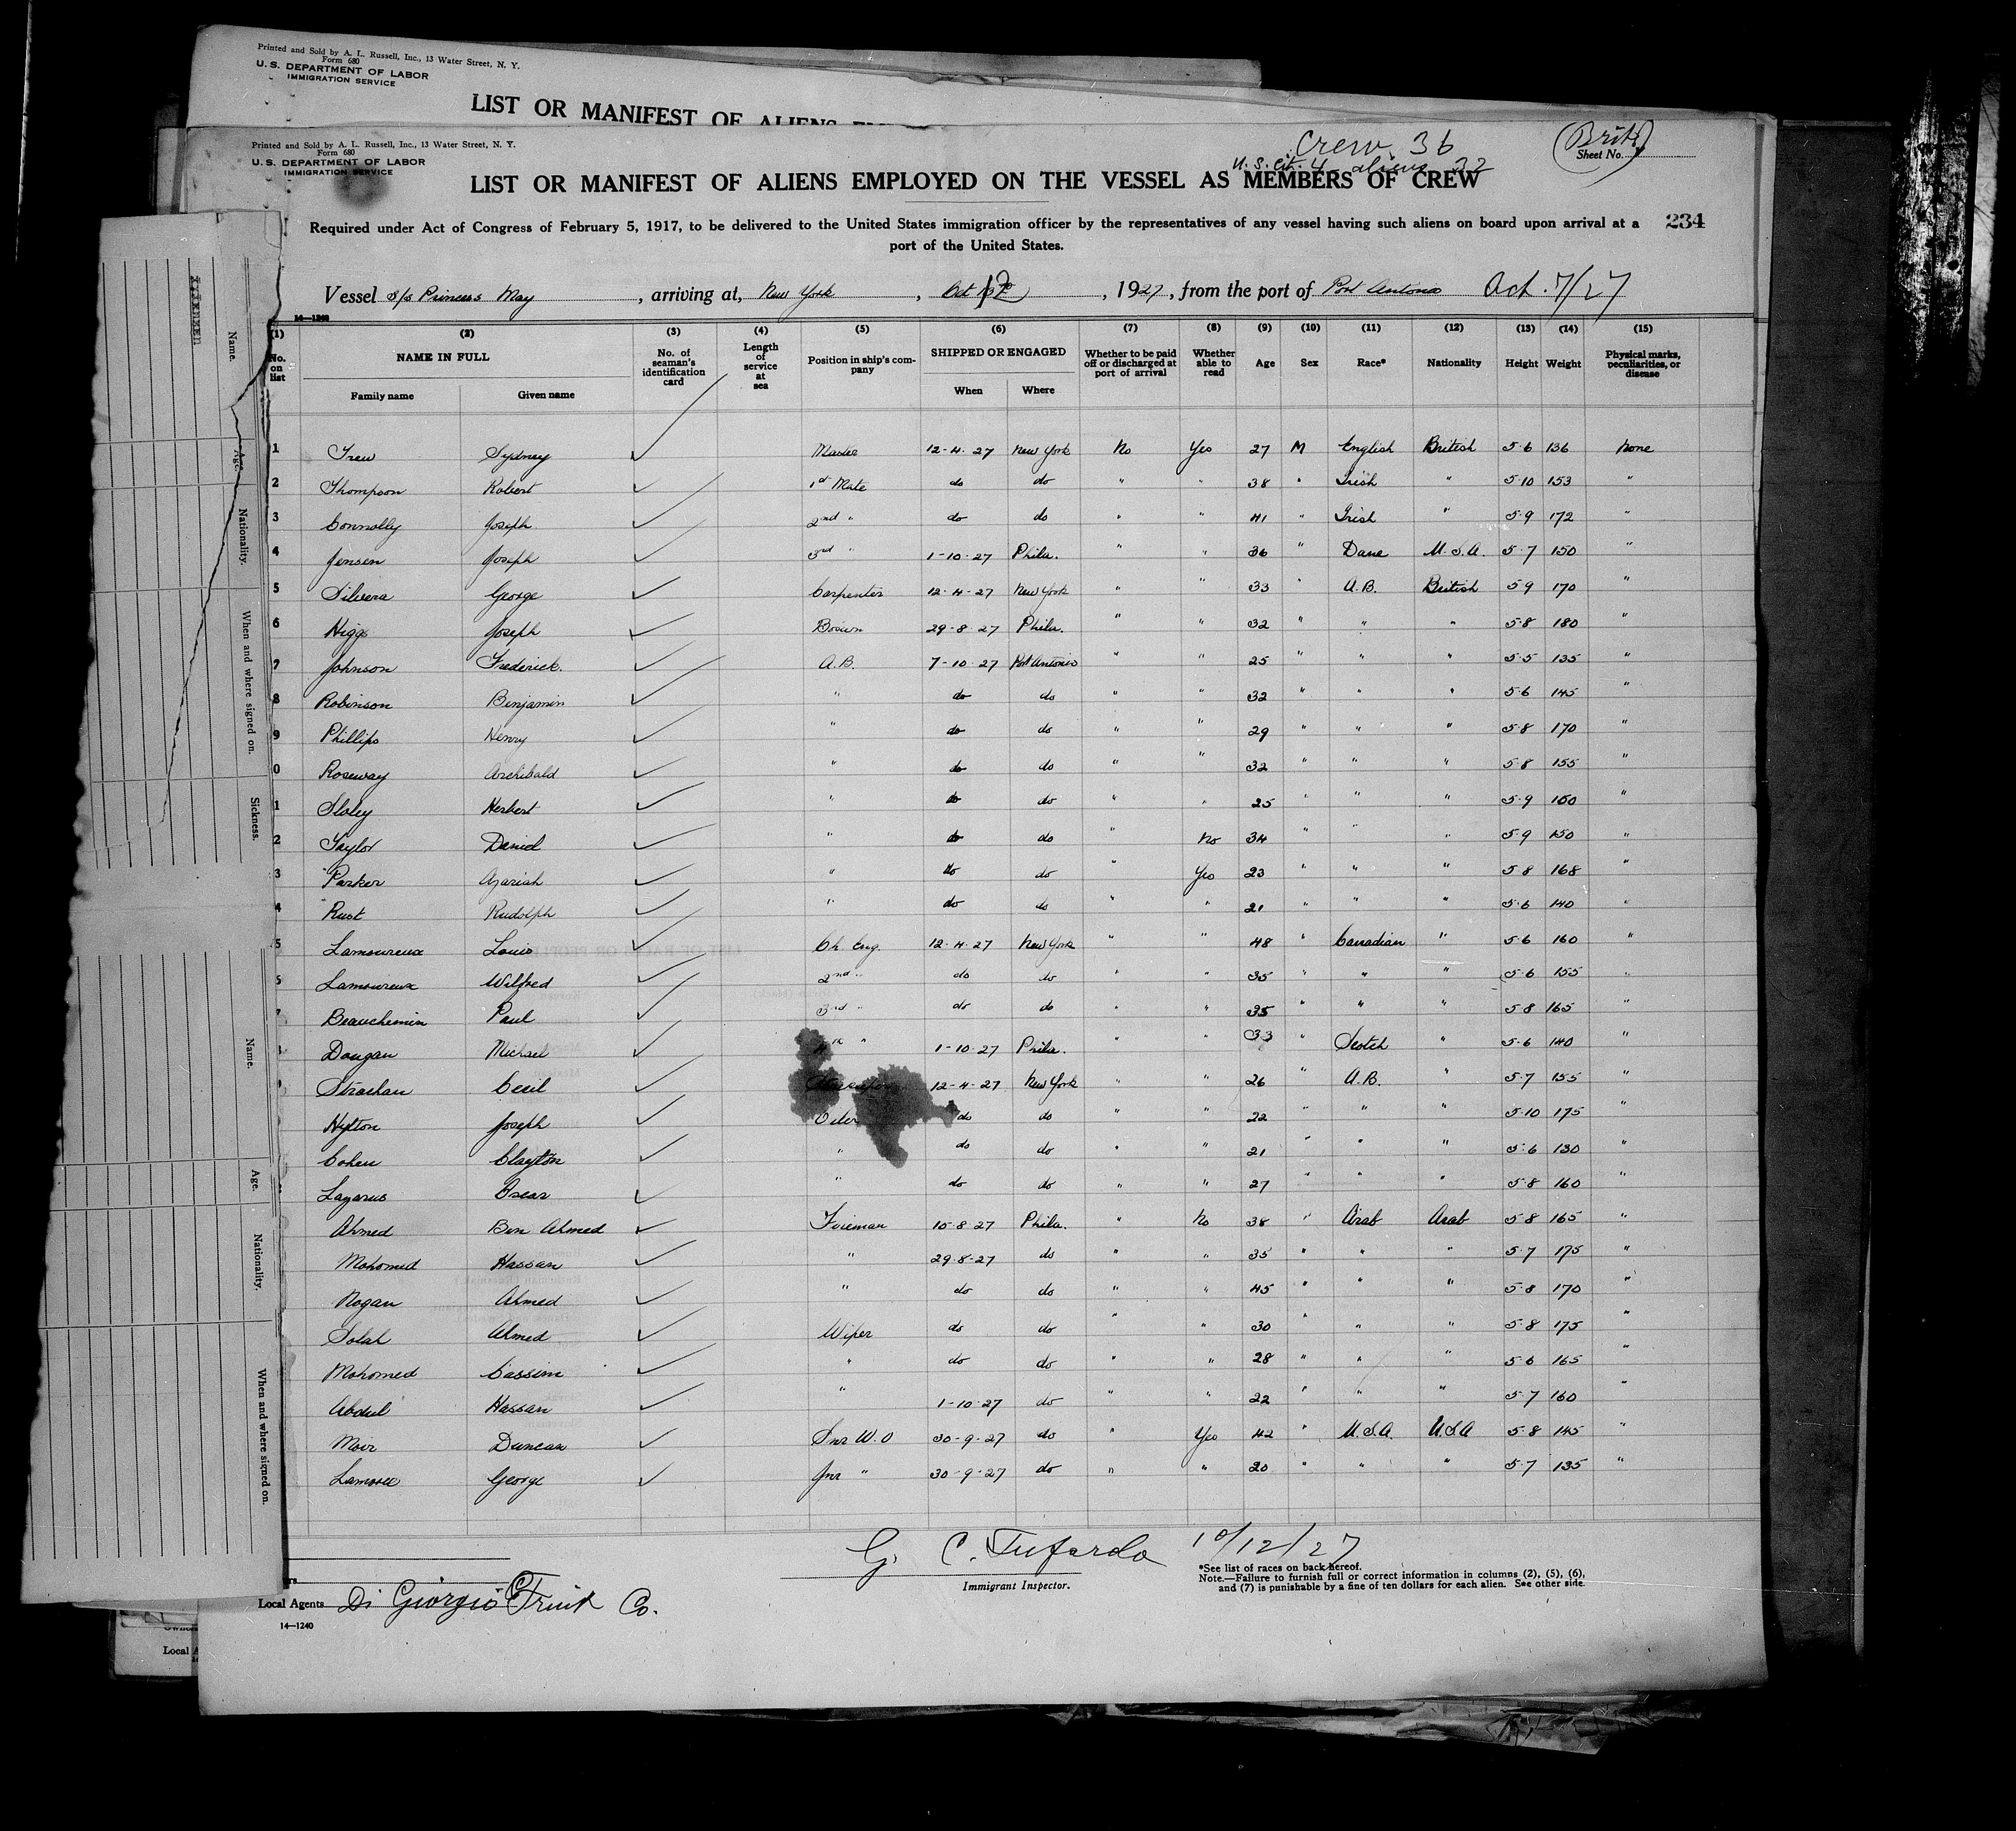 Printed and Sold by A. L. Russell, Inc., 13 Water Street, N. Y.
Form 680
U. S. DEPARTMENT OF LABOR
IMMIGRATION SERVICE
LIST OR MANIFEST OF ALIENS
Printed and Sold by A. L. Russell, Inc., 13 Water Street, N. Y.
Form 680
U. S. DEPARTMENT OF LABOR
IMMIGRATION SERVICE
Crew 36
U.S. cit. 4 aliens 32
(Brit)
Sheet No.
LIST OR MANIFEST OF ALIENS EMPLOYED ON THE VESSEL AS MEMBERS OF CREW
Required under Act of Congress of February 5, 1917, to be delivered to the United States immigration officer by the representatives of any vessel having such aliens on board upon arrival at a
port of the United States.
234
Vessel S/S Princess May, arriving at, New York, Oct 12, 1927, from the port of Port Antonio Oct. 7/27
14—1240
(1) (2) (3) (4) (5) (6) (7) (8) (9) (10) (11) (12) (13) (14) (15)
No. on list NAME IN FULL No. of seaman's identification card Length of service at sea Position in ship's company SHIPPED OR ENGAGED Whether to be paid off or discharged at port of arrival Whether able to read Age Sex Race* Nationality Height Weight Physical marks, peculiarities, or disease
Family name Given name When Where
1 Trew Sydney Master 12-4-27 New York No Yes 27 M English British 5-6 136 None
2 Thompson Robert 1st Mate do do " " 38 " Irish " 5-10 153 "
3 Connolly Joseph 2nd " do do " " 41 " Irish " 5-9 172 "
4 Jensen Joseph 3rd " 1-10-27 Phila. " " 36 " Dane U.S.A. 5-7 150 "
5 Silvera George Carpenter 12-4-27 New York " " 33 " A.B. British 5-9 170 "
6 Higgs Joseph Bosun 29-8-27 Phila. " " 32 " " " 5-8 180 "
7 Johnson Frederick. A.B. 7-10-27 Port Antonio " " 25 " " " 5-5 135 "
8 Robinson Benjamin " do do " " 32 " " " 5-6 145 "
9 Phillips Henry " do do " " 29 " " " 5-8 170 "
0 Roseway Archibald " do do " " 32 " " " 5-8 155 "
1 Sloley Herbert " do do " " 25 " " " 5-9 160 "
2 Taylor Daniel " do do " No 34 " " " 5-9 150 "
3 Parker Azariah " do do " Yes 23 " " " 5-8 168 "
4 Rust Rudolph " do do " " 21 " " " 5-6 140 "
5 Lamoureux Louis Ch. Eng. 12-4-27 New York " " 48 " Canadian " 5-6 160 "
Lamoureux Wilfred 2nd " do do " " 35 " " " 5-6 155 "
Beauchemin Paul 3rd " do do " " 35 " " " 5-8 165 "
Dougan Michael " 1-10-27 Phila. " " 33 " Scotch " 5-6 140 "
Strachan Cecil 12-4-27 New York " " 26 " A.B. " 5-7 155 "
Hylton Joseph Oiler do do " " 22 " " " 5-10 175 "
Cohen Clayton " do do " " 21 " " " 5-6 130 "
Lazarus Oscar " do do " " 27 " " " 5-8 160 "
Ahmed Ben Ahmed Fireman 15-8-27 Phila. " No 38 " Arab Arab 5-8 165 "
Mohomed Hassan " 29-8-27 do " " 35 " " " 5-7 175 "
Nogan Ahmed " do do " " 45 " " " 5-8 170 "
Solah Ahmed Wiper do do " " 30 " " " 5-8 175 "
Mohomed Cassim " do do " " 28 " " " 5-6 165 "
Abdul Hassan " 1-10-27 do " " 22 " " " 5-7 160 "
Moir Duncan Snr W.O 30-9-27 do " Yes 42 " U.S.A. U.S.A 5-8 145 "
George Jnr " 30-9-27 do " " 20 " " " 5-7 135 "
G. C. Tufardo 10/12/27
Immigrant Inspector.
*See list of races on back hereof.
Note.—Failure to furnish full or correct information in columns (2), (5), (6),
and (7) is punishable by a fine of ten dollars for each alien. See other side.
Local Agents Di Giorgio Fruit Co.
14—1240
Local A
Name.
Age.
Nationality.
When and where signed on.
Sickness.
Name.
Age.
Nationality.
When and where signed on.